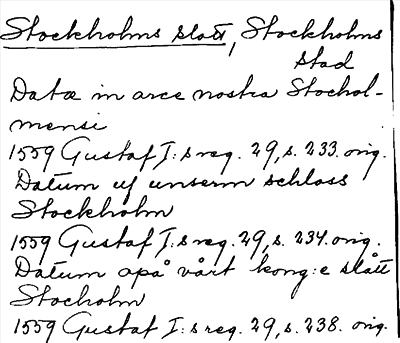 Stockholms slott, Stockholms
stad
Datæ in arce nostra Stochol-
mensi
1559 Gustaf I:s reg. 29, s. 233. orig.
Datum uf unserm schloss
Stockholm
1559 Gustaf I:s reg. 29, s. 234. orig.
Datum apå vårt kong:e slått
Stocholm
1559 Gustaf I:s reg. 29, s. 238. orig.